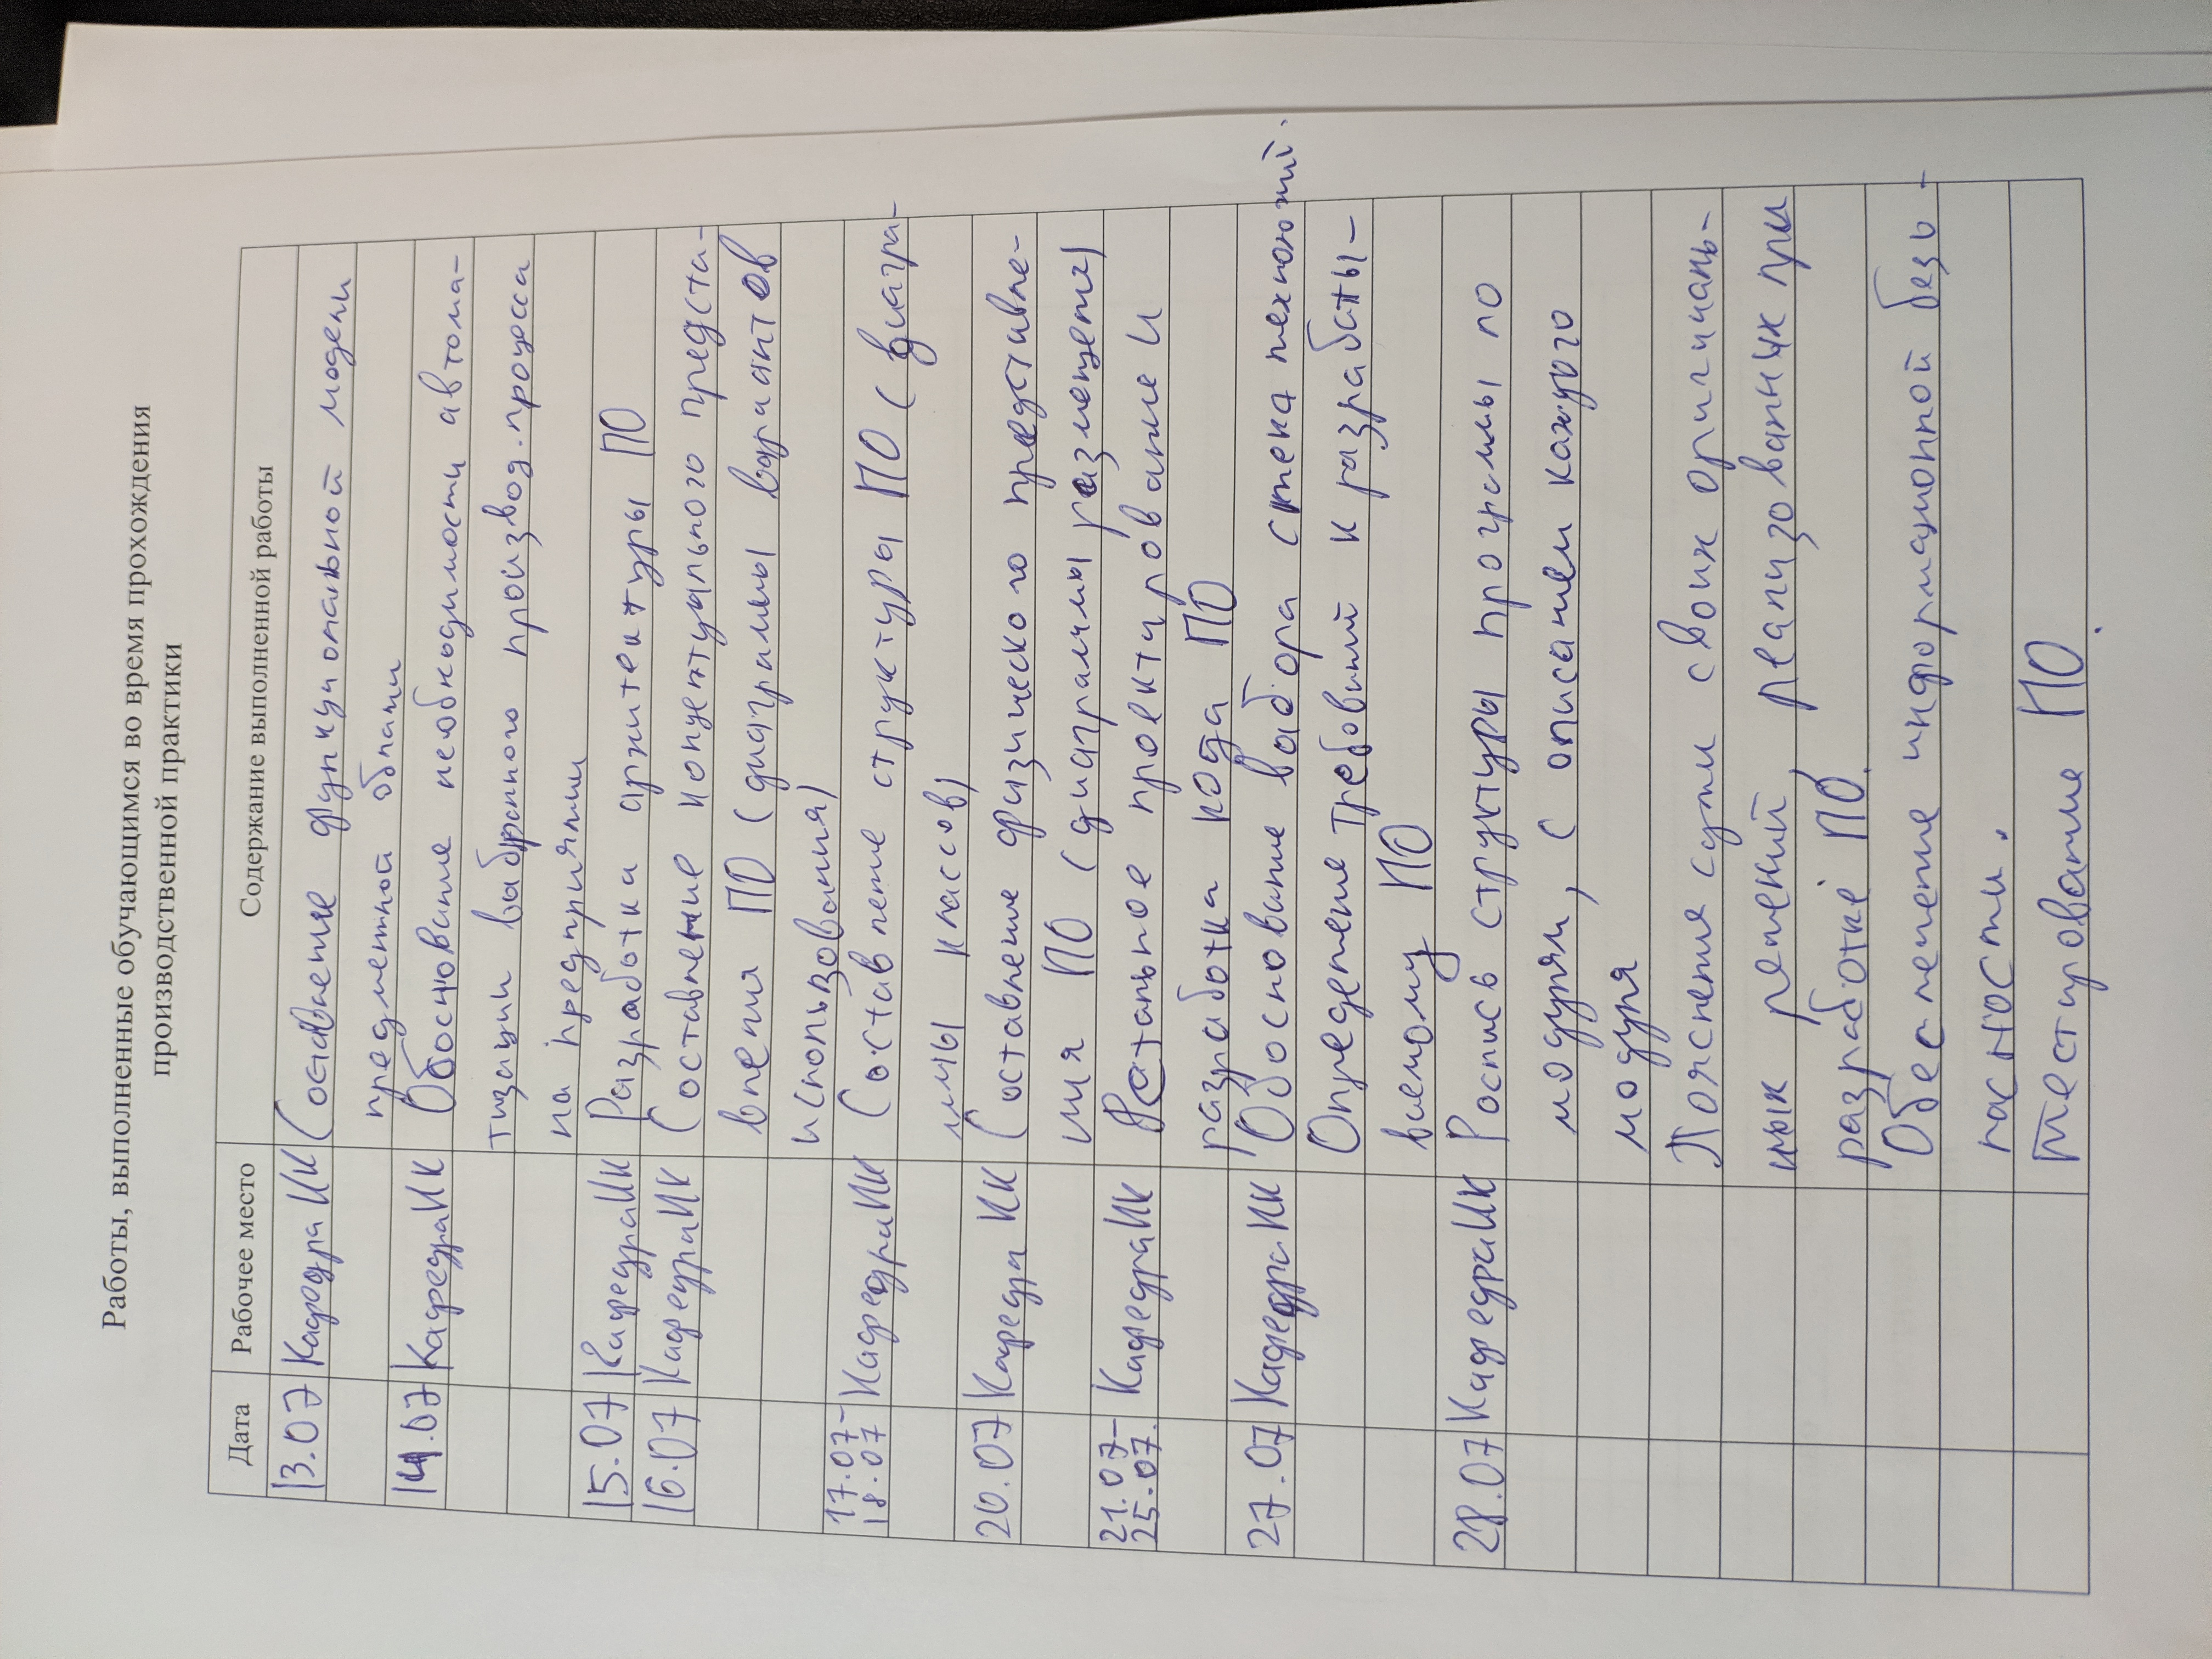 Работы, выполненные обучающимся во время прохождения
производственной практики
Дата Рабочее место Содержание выполненной работы
13.07 Кафедра ИК Составление функциональной модели
предметной области
14.07 Кафедра ИК Обоснование необходимости автома-
тизации выбранного производ. процесса
на предприятии
15.07 Кафедра ИК Разработка архитектуры ПО
16.07 Кафедра ИК Составление концептуального предста-
вления ПО (диаграммы вариантов
использования)
17.07-
18.07 Кафедра ИК Составление структуры ПО (диагра-
ммы классов)
20.07 Кафедра ИК Составление физического представле-
ния ПО (диаграммы размещения)
21.07-
25.07. Кафедра ИК Детальное проектирование и
разработка кода ПО
27.07 Кафедра ИК Обоснование выбора стека технологий.
Определение требований к разрабаты-
ваемому ПО
28.07 Кафедра ИК Роспись структуры программы по
модулям, с описанием каждого
модуля
Пояснения сути своих оригиналь-
ных решений, реализованных при
разработке ПО.
Обеспечение информационной безо-
пасности.
Тестирование ПО.